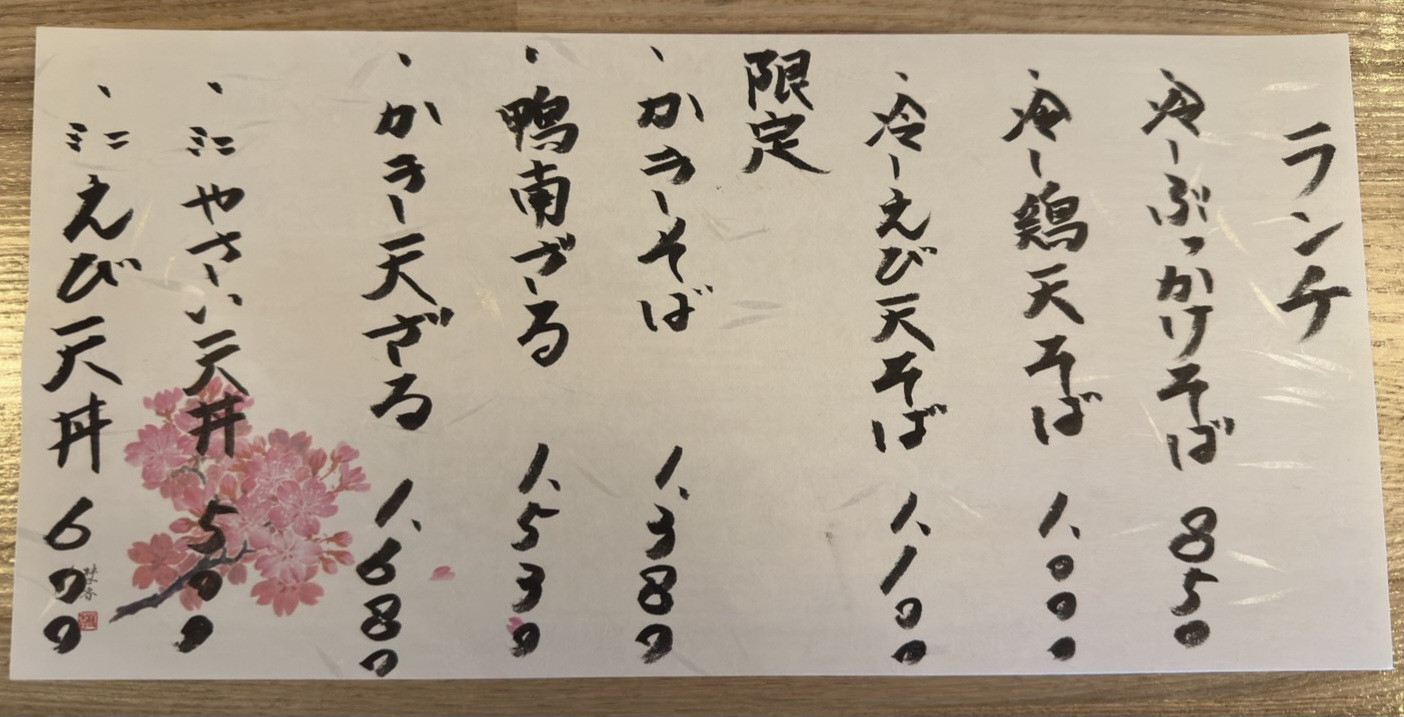 ランチ
、冷しぶっかけそば 850
、冷し鶏天そば 1、000
、冷しえび天そば 1、100
限定
、かきそば 1、380
、鴨南ざる 1、530
、かき天ざる 1、680
、ミニやさい天丼 500
、ミニえび天丼 600